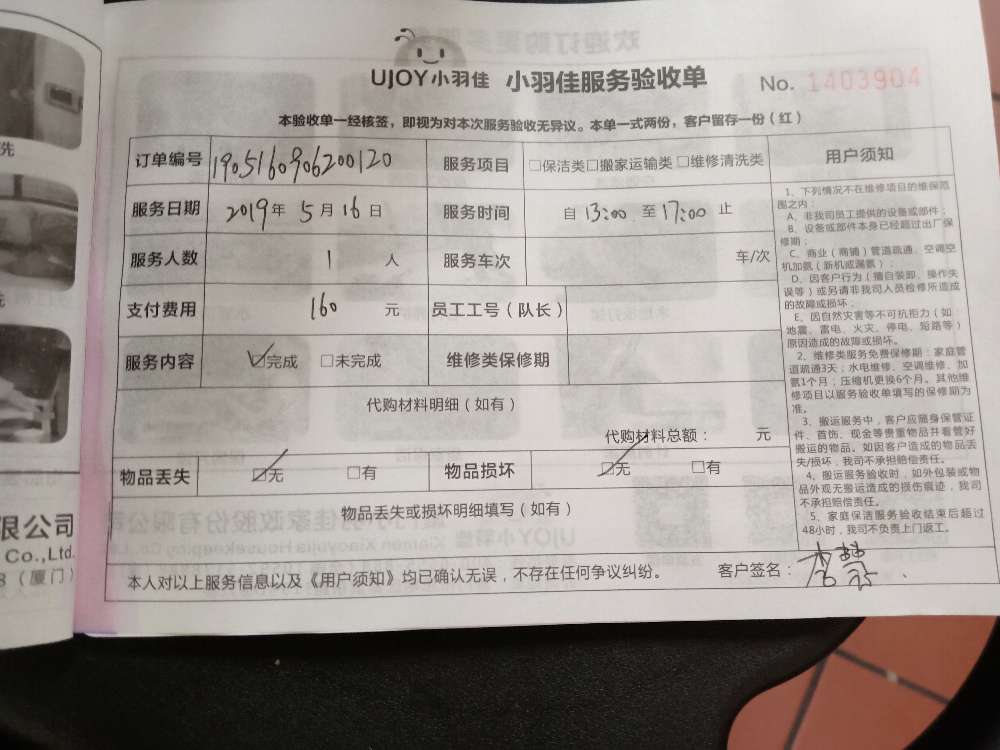 UJOY小羽佳 小羽佳服务验收单 No. 1403904
本验收单一经核签，即视为对本次服务验收无异议。本单一式两份，客户留存一份（红）
订单编号 1905160906200120 服务项目 □保洁类□搬家运输类□维修清洗类
服务日期 2019年 5月16日 服务时间 自 13:00 至 17:00 止
服务人数 1 人 服务车次 车/次
支付费用 160 元 员工工号（队长）
服务内容 ☑完成 □未完成 维修类保修期
代购材料明细（如有）
代购材料总额： 元
物品丢失 ☑无 □有 物品损坏 ☑无 □有
物品丢失或损坏明细填写（如有）
本人对以上服务信息以及《用户须知》均已确认无误，不存在任何争议纠纷。 客户签名：
用户须知
1、下列情况不在维修项目的维保范
围之内：
A、非我司员工提供的设备或部件；
B、设备或部件本身已经超过出厂保
修期；
C、商业（商铺）管道疏通、空调空
机加氨（新机或漏氨）；
D、因客户行为（擅自装卸、操作失
误等）或另请非我司人员检修所造成
的故障或损坏；
E、因自然灾害等不可抗拒力（如：
地震、雷电、火灾、停电、短路等）
原因造成的故障或损坏。
2、维修类服务免费保修期：家庭管
道疏通3天；水电维修、空调维修、加
氨1个月；压缩机更换6个月。其他维
修项目以服务验收单填写的保修期为
准。
3、搬运服务中，客户应随身保管证
件、首饰、现金等贵重物品并看管好
搬运的物品。如因客户造成的物品丢
失/损坏，我司不承担赔偿责任。
4、搬运服务验收时，如外包装或物
品外观无搬运造成的损伤痕迹，我司
不承担赔偿责任。
5、家庭保洁服务验收结束后超过
48小时，我司不负责上门返工。
先
限公司
Co.,Ltd.
8（厦门）